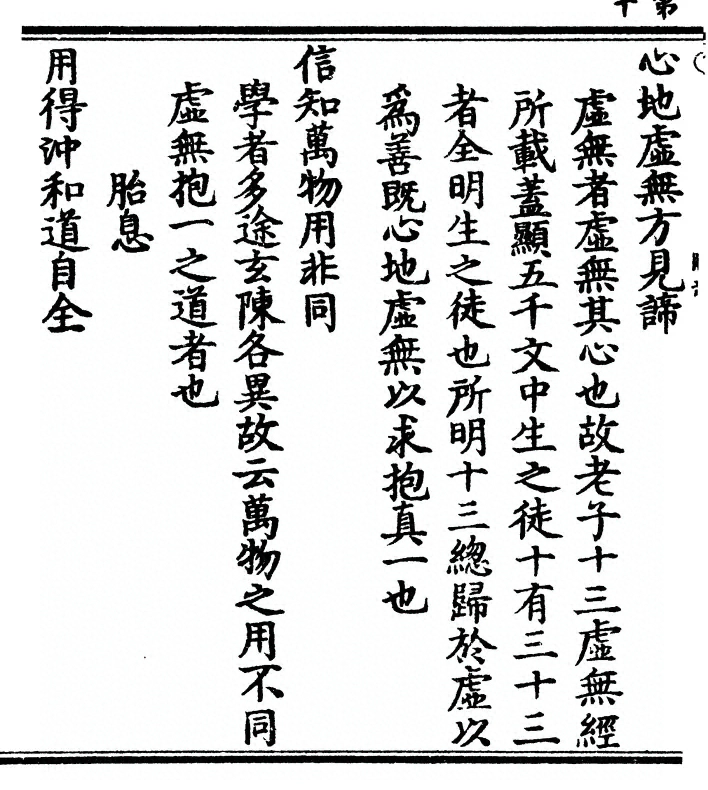 心地虛無方見諦
虛無者虛無其心也故老子十三虛無經
所載蓋顯五千文中生之徒十有三十三
者全明生之徒也所明十三總歸於虛以
爲善既心地虛無以求抱真一也
信知萬物用非同
學者多途玄陳各異故云萬物之用不同
虛無抱一之道者也
胎息
用得沖和道自全